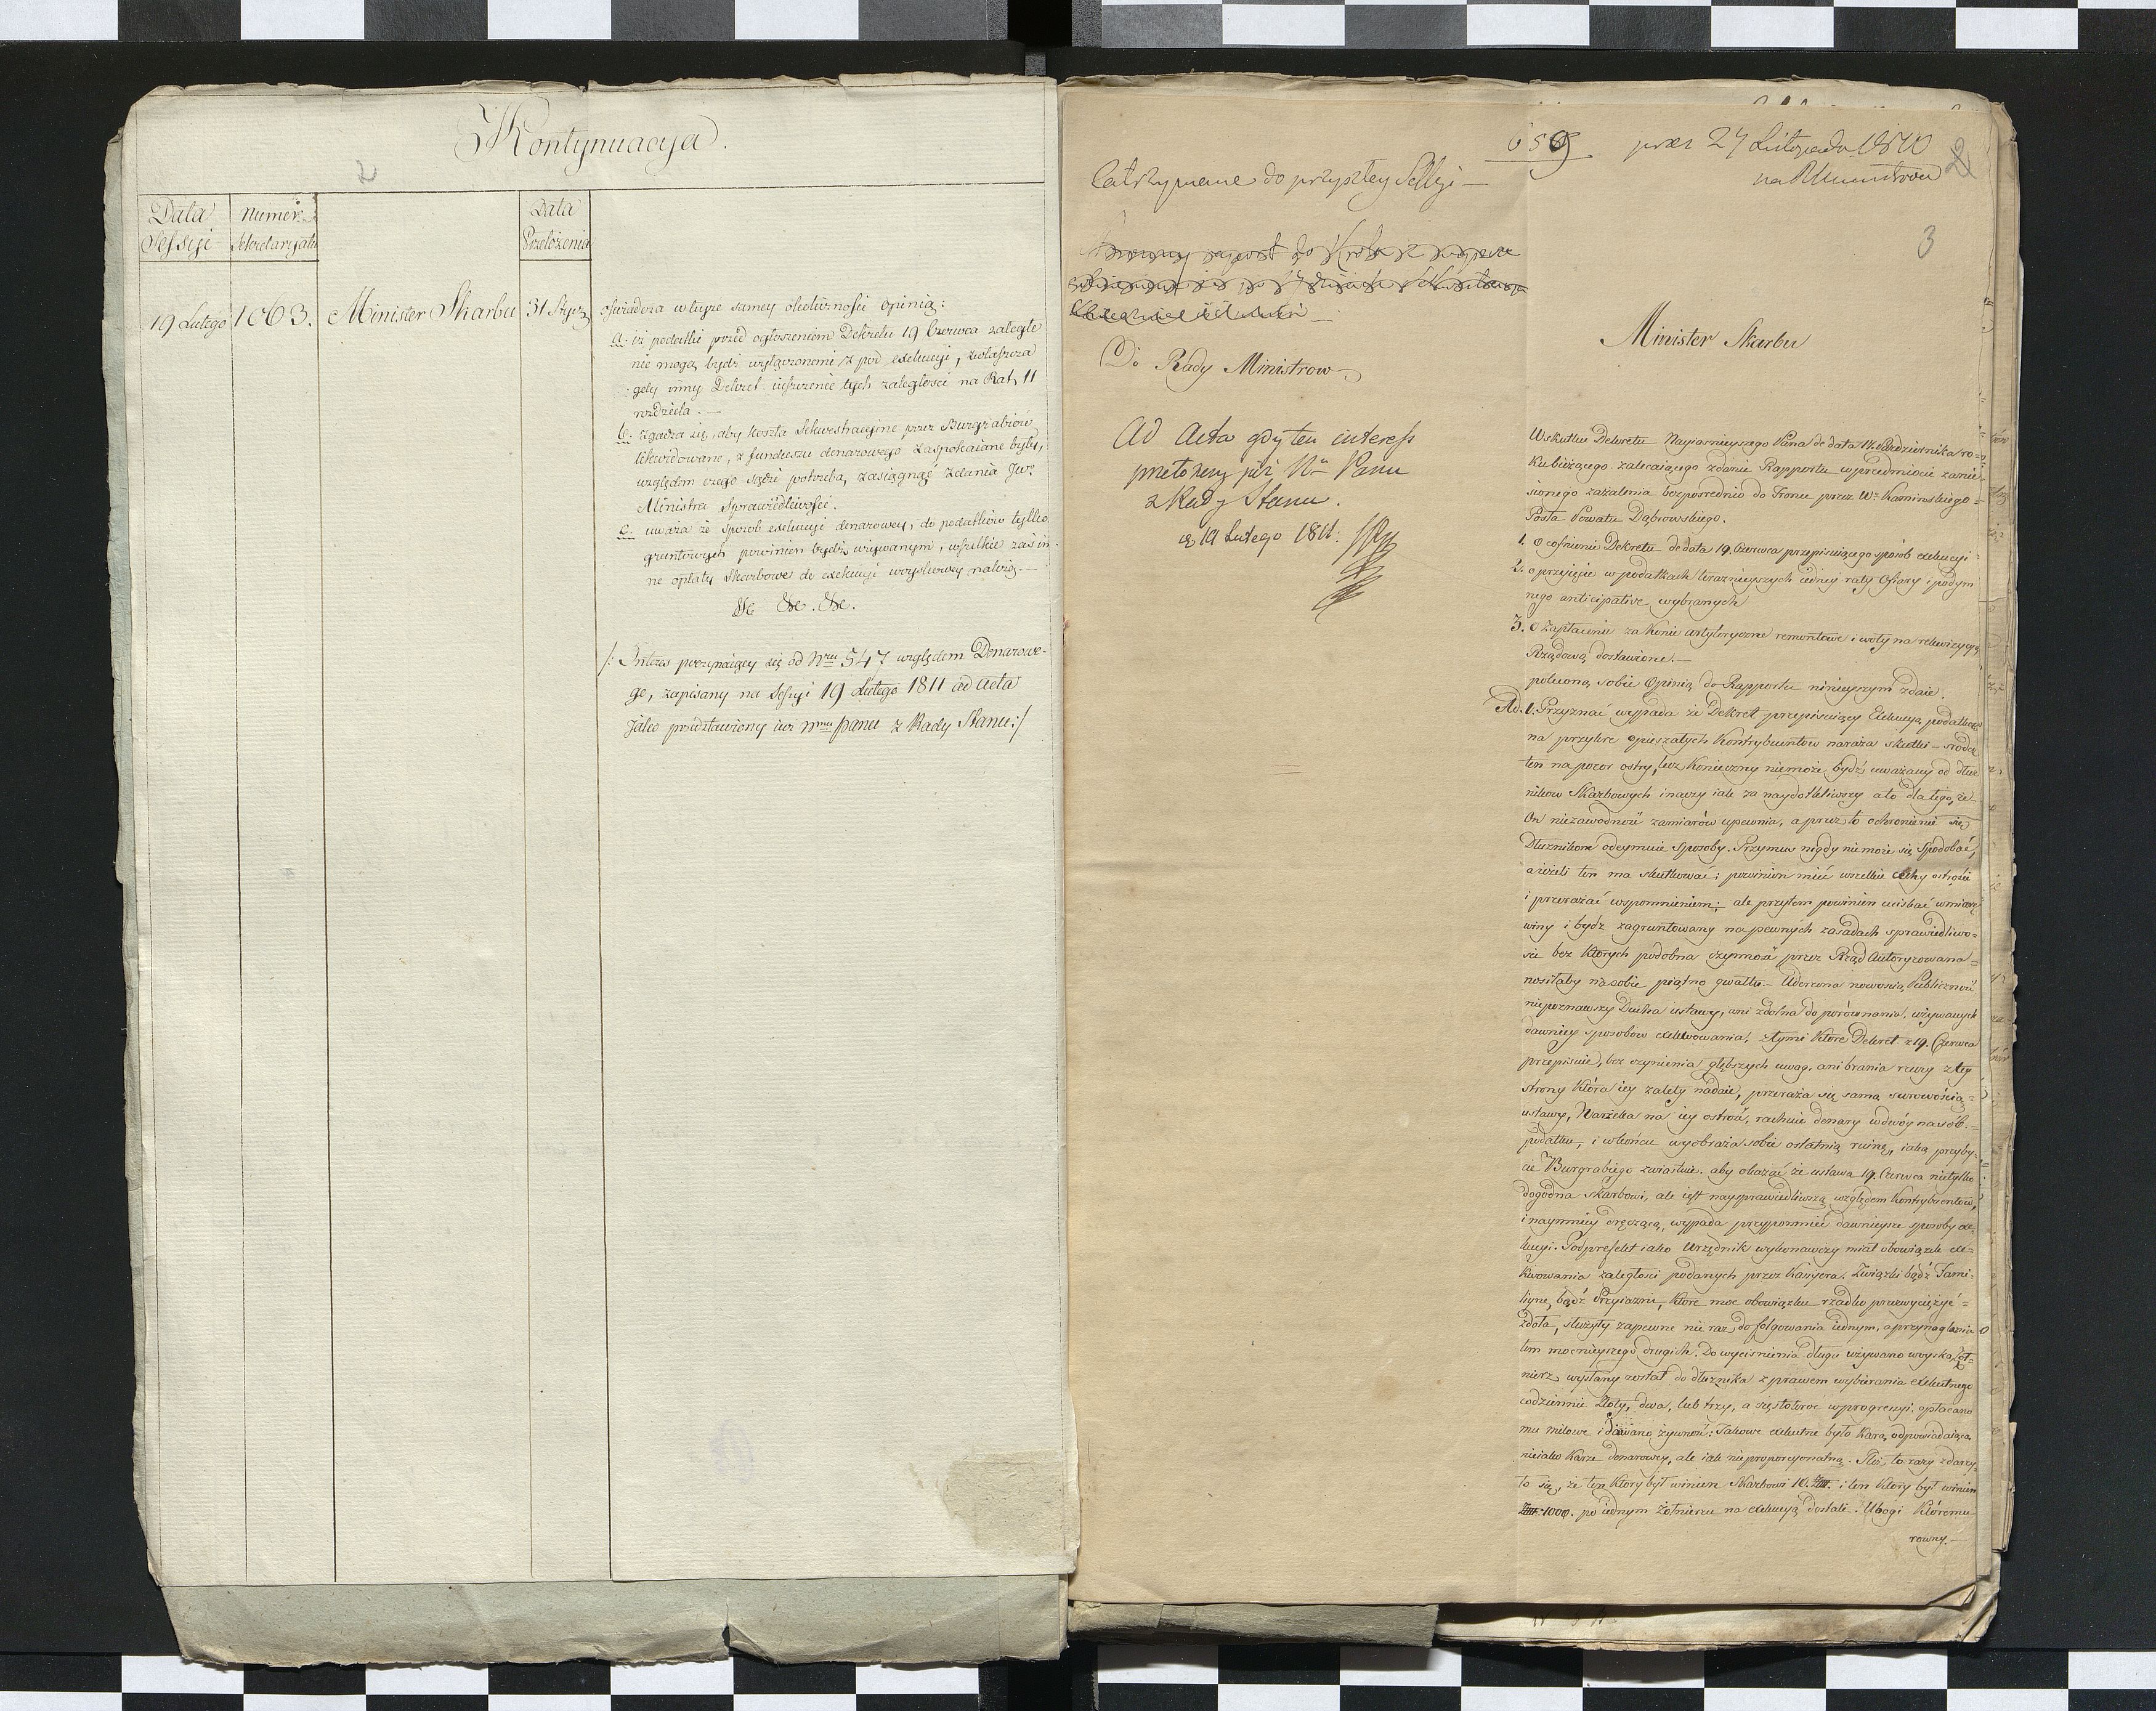 Kontynuacya.
2
Data Sessyi
Numer Sekretaryatu
Data Przełożenia
19 Lutego 1063. Minister Skarbu 31 Stycz.
oświadcza w tuyże samey okoliczności Opinią:
a. iż podatki przed ogłoszeniem Dekretu 19 Czerwca zaległe
nie mogą bydź wyłączonemi z pod exekucyi, zwłaszcza
gdy inny Dekret uiszczenie tych zaległości na Rat 11
rozdziela. —
b. zgadza się, aby koszta Sekwestracyine przez Burgrabiów
likwidowane, z funduszu denarowego zaspokaiane były,
względem czego sądzi potrzebą, zasięgnąć zdania JW.
Ministra Sprawiedliwości.
c. uważa że sposób exekucyi denarowey, do podatków tylko
gruntowych powinien bydź używanym, wszelkie zaś in-
ne opłaty Skarbowe do exekucyi woyskowey należą. —
&c &c. &c.
/: Interes poczynaiący się od Nru 547 względem Denarowe-
go, zapisany na Sessyi 19 Lutego 1811 ad acta
Jako przedstawiony iuż Nmu Panu z Rady Stanu :/
659 prez 27 Listopada 1810
na R. Ministrów
2
3
Zatrzymane do przyszłey Sessyi —
Do Rady Ministrow
Ad Acta gdy ten interess
przełożony iuż Nu Panu
z Rady Stanu.
19 Lutego 1811.
Minister Skarbu
Wskutku Dekretu Nayiasnieyszego Pana de data 14. Października ro-
ku bieżącego zalecaiącego zdanie Rapportu w przedmiocie zanie-
sionego zażalenia bezpośrednio do Tronu przez Wo Kaminskiego
Posła Powiatu Dąbrowskiego.
1. o cofnienie Dekretu de data 19. Czerwca przepisuiącego sposób exekucyi
2. o przyięcie w podatkach teraznieyszych iedney raty Ofiary i podym-
nego anticipative wybranych
3. o zapłacenie za konie artyleryczne remontowe i woły na rekwizycyą
Rządową dostawione. —
poleconą sobie Opinią do Rapportu ninieyszym zdaie.
Ad. 1. Przyznać wypada że Dekret przepisuiący Exekucyą podatków
na przykre opieszałych Kontrybuentów naraża skutki — srodek
ten na pozor ostry, lecz konieczny niemoże bydź uważany od dłuż-
ników Skarbowych inaczy iak za naydotkliwszy a to dla tego, że
On niezawodność zamiarów upewnia, a przez to ochronienie się
Dłużnikom odeymuie sposoby. Przymus nigdy nie może się spodobać,
a ieżeli ten ma skutkować; powinien mieć wszelkie cechy ostrości
i przerażać wspomnieniem; ale przytem powinien uciskać w miarę
winy i bydź zagruntowany na pewnych zasadach sprawiedliwo-
sci bez których podobna czynność przez Rząd Autoryzowana
nosiłaby na sobie piątno gwałtu. — Uderzona nowością Publiczność
niepoznawszy Ducha ustawy, ani zdolna do porównania, używanych
dawniey sposobow exekwowania, z tymi które Dekret z 19. Czerwca
przepisuie, bez czynienia głębszych uwag, ani brania rzeczy z tey
strony która iey zalety nadaie, przeraża się samą surowością
ustawy, Narzeka na iey ostrość, rachuie denary w dwóynasób
podatku, i w końcu wyobraża sobie ostatnią ruinę, iaką przyby-
cie Burgrabiego zwiastuie. aby okazać że ustawa 19. Czerwca nietylko
dogodna Skarbowi, ale iest naysprawiedliwszą względem Kontrybuentów,
i naymniey dręczącą, wypada przypomnieć dawnieysze sposoby exe-
kucyi. Podprefekt iako Urzędnik wykonawczy miał obowiązek exe-
kwowania zaległości podanych przez Kassyera. Związki bądź Fami-
liyne, bądź Przyiazni, które moc obowiązku rzadko przezwyciężyć
zdoła, służyły zapewne nie raz do folgowania iednym, a przynaglania
tem mocnieyszego drugich. Do wyciśnienia długu używano woyska, żoł-
nierz wysłany został do dłużnika z prawem wybierania exekutnego
codziennie Złoty, dwa, lub trzy, a częstokroć w progressyi, opłacano
mu milowe i dawano żywność: Takowe exekutne było karą, odpowiadaiącą
nieiako karze denarowey, ale iak nieproporcyonalną. Ileż to razy zdarzy-
ło się, że ten który był winien Skarbowi 10. Złł. i ten który był winien
Złł. 1000. po iednym żołnierzu na exekucyą dostali. Ubogi któremu
rowny. —